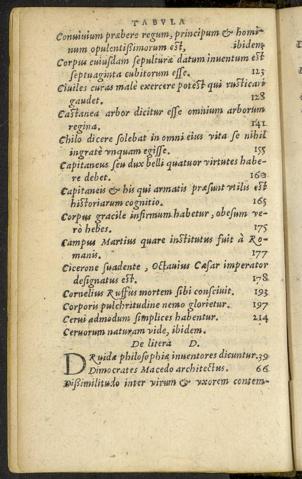 TABVLA
Conuiuium præbere regum, principum & homi-
num opulentissimorum est, ibidem
Corpus cuiusdam sepultura datum inuentum est
septuaginta cubitorum esse. 123
Ciuiles curas malè exercere potest qui rusticari
gaudet. 128
Castanea arbor dicitur esse omnium arborum
regina. 141
Chilo dicere solebat in omni eius vita se nihil
ingratè vnquam egisse. 155
Capitaneus seu dux belli quatuor virtutes habe-
re debet. 160
Capitaneis & his qui armatis præsunt vtilis est
historiarum cognitio. 165
Corpus gracile infirmum habetur, obesum ve-
rò hebes. 175
Campus Martius quare institutus fuit à Ro-
manis. 177
Cicerone suadente, Octauius Cæsar imperator
designatus est. 178
Cornelius Ruffus mortem sibi consciuit. 193
Corporis pulchritudine nemo glorietur. 197
Cerui admodum simplices habentur. 214
Ceruorum naturam vide, ibidem.
De litera D.
DRuidæ philosophiæ inuentores dicuntur. 39
Dimocrates Macedo architectus. 66
Dissimilitudo inter virum & vxorem contem-